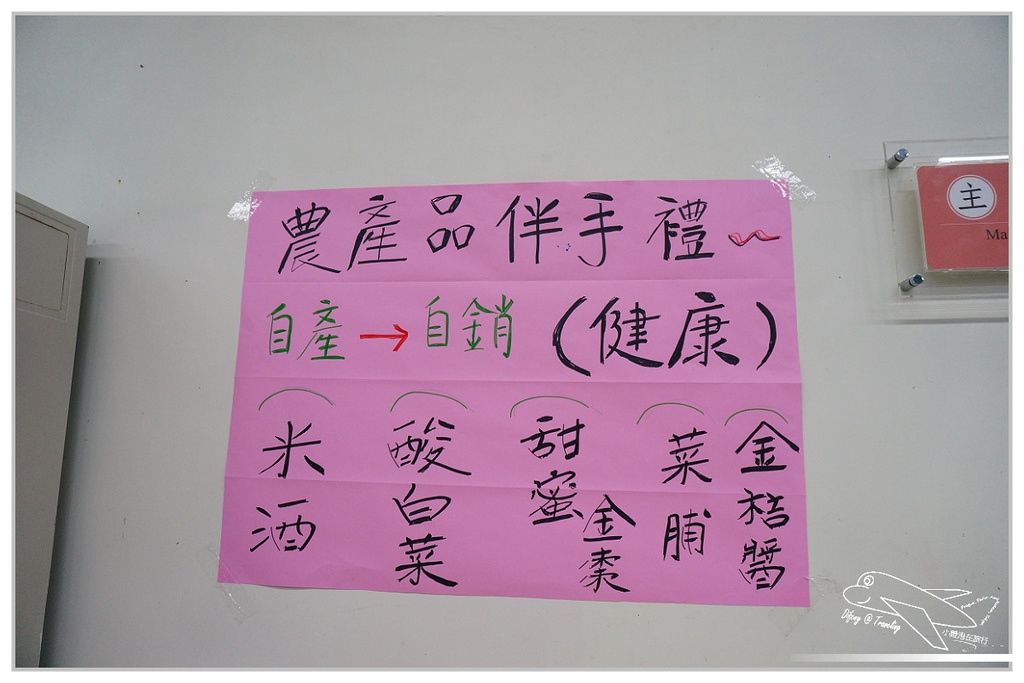 農產品伴手禮~
自產→自銷(健康)
金桔醬
菜脯
甜蜜金棗
酸白菜
米酒
主
Ma
Difeng @ Traveling
小腹泡在旅行